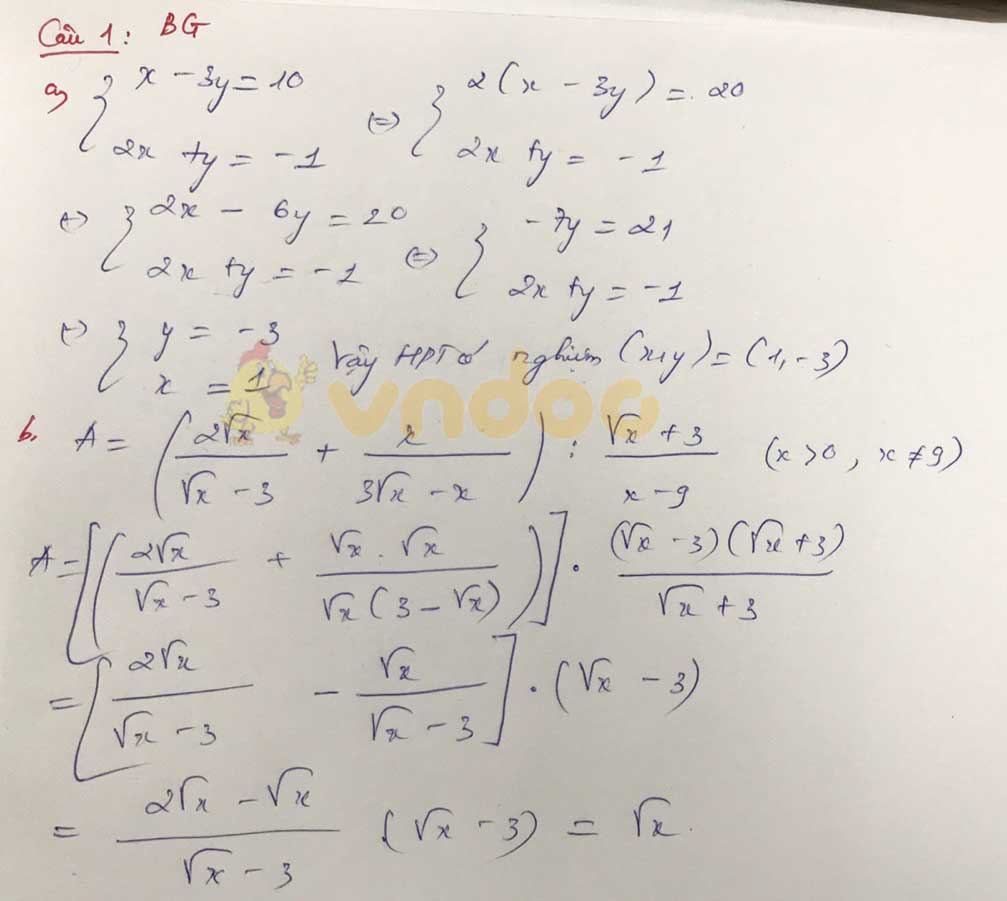 Câu 1: BG
a) { x - 3y = 10 ⇔ { 2(x - 3y) = 20
2x + y = -1 2x + y = -1
⇔ { 2x - 6y = 20 ⇔ { -7y = 21
2x + y = -1 2x + y = -1
⇔ { y = -3
x = 1 Vậy HPT có nghiệm (x,y) = (1,-3)
vndoc
b. A = (2√x / (√x - 3) + x / (3√x - x)) : (√x + 3) / (x - 9) (x > 0, x ≠ 9)
A = [(2√x / (√x - 3) + √x . √x / (√x (3 - √x)))] . (√x - 3)(√x + 3) / (√x + 3)
= [2√x / (√x - 3) - √x / (√x - 3)] . (√x - 3)
= (2√x - √x) / (√x - 3) . (√x - 3) = √x.